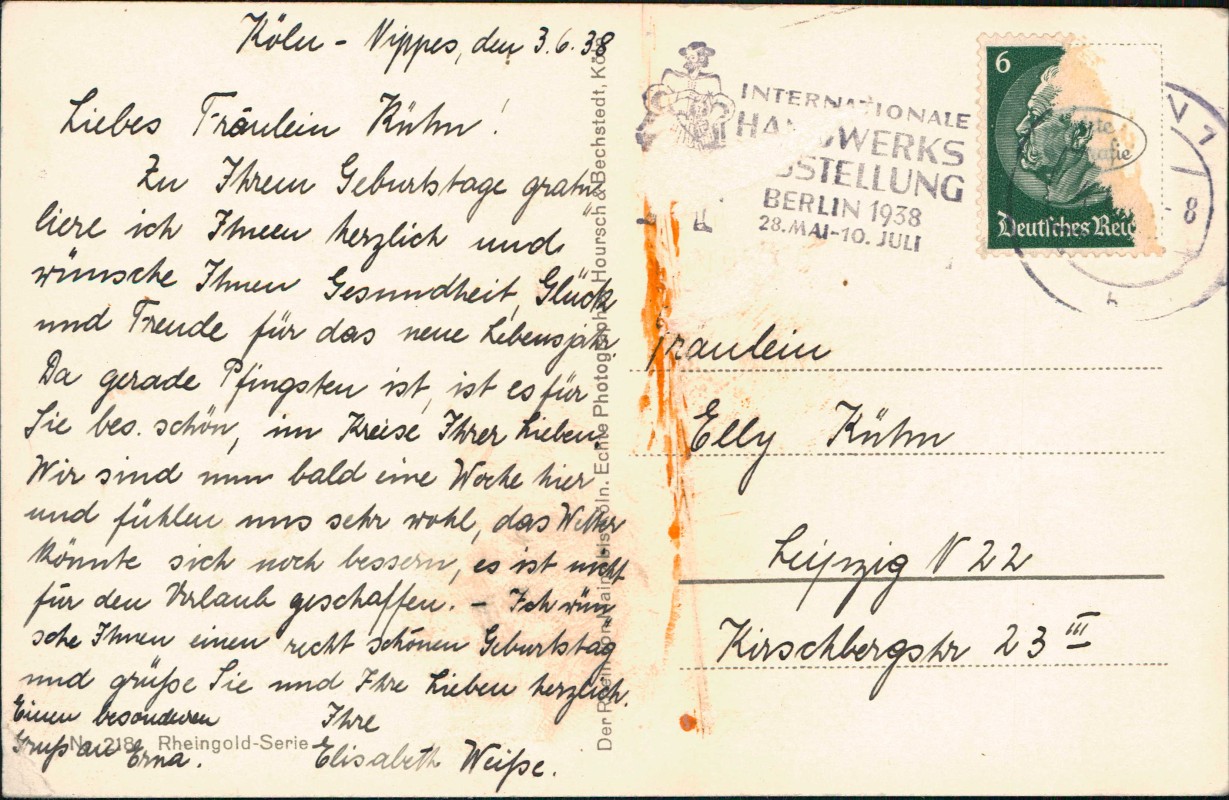 Köln - Nippes, den 3.6.38
Liebes Fräulein Kühn!
Zu Ihrem Geburtstage gratu-
liere ich Ihnen herzlich und
wünsche Ihnen Gesundheit, Glück
und Freude für das neue Lebensjahr.
Da gerade Pfingsten ist, ist es für
Sie bes. schön, im Kreise Ihrer Lieben.
Wir sind nun bald eine Woche hier
und fühlen uns sehr wohl, das Wetter
könnte sich noch bessern, es ist nicht
für den Urlaub geschaffen. - Ich wün
sche Ihnen einen recht schönen Geburtstag
und grüße Sie und Ihre Lieben herzlich.
Einen besonderen
Gruß an Erna.
Ihre
Elisabeth Weiße.
No. 218 Rheingold-Serie
Der Rhein von Mainz bis Köln. Echte Photographie Hoursch & Bechstedt, Köln
INTERNATIONALE
HANDWERKS
AUSSTELLUNG
BERLIN 1938
28. MAI-10. JULI
6
Deutsches Reic
8
Fräulein
Elly Kühn
Leipzig N 22
Kirschbergstr 23 III